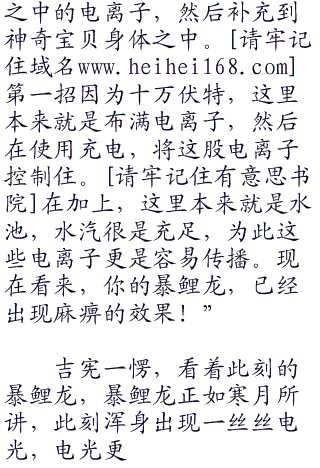 之中的电离子，然后补充到
神奇宝贝身体之中。[请牢记
住域名www.heihei168.com]
第一招因为十万伏特，这里
本来就是布满电离子，然后
在使用充电，将这股电离子
控制住。[请牢记住有意思书
院]在加上，这里本来就是水
池，水汽很是充足，为此这
些电离子更是容易传播。现
在看来，你的暴鲤龙，已经
出现麻痹的效果！”
吉宪一愣，看着此刻的
暴鲤龙，暴鲤龙正如寒月所
讲，此刻浑身出现一丝丝电
光，电光更